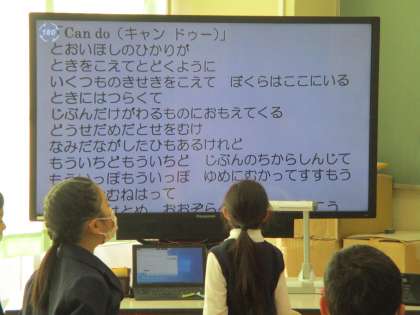 Can do（キャン ドゥー）」
とおいほしのひかりが
ときをこえてとどくように
いくつものきせきをこえて　ぼくらはここにいる
ときにはつらくて
じぶんだけがわるものにおもえてくる
どうせだめだとせをむけ
なみだながしたひもあるけれど
もういちどもういちど　じぶんのちからしんじて
もういっぽもういっぽ　ゆめにむかってすすもう
むねはって
おおぞら
Panasonic